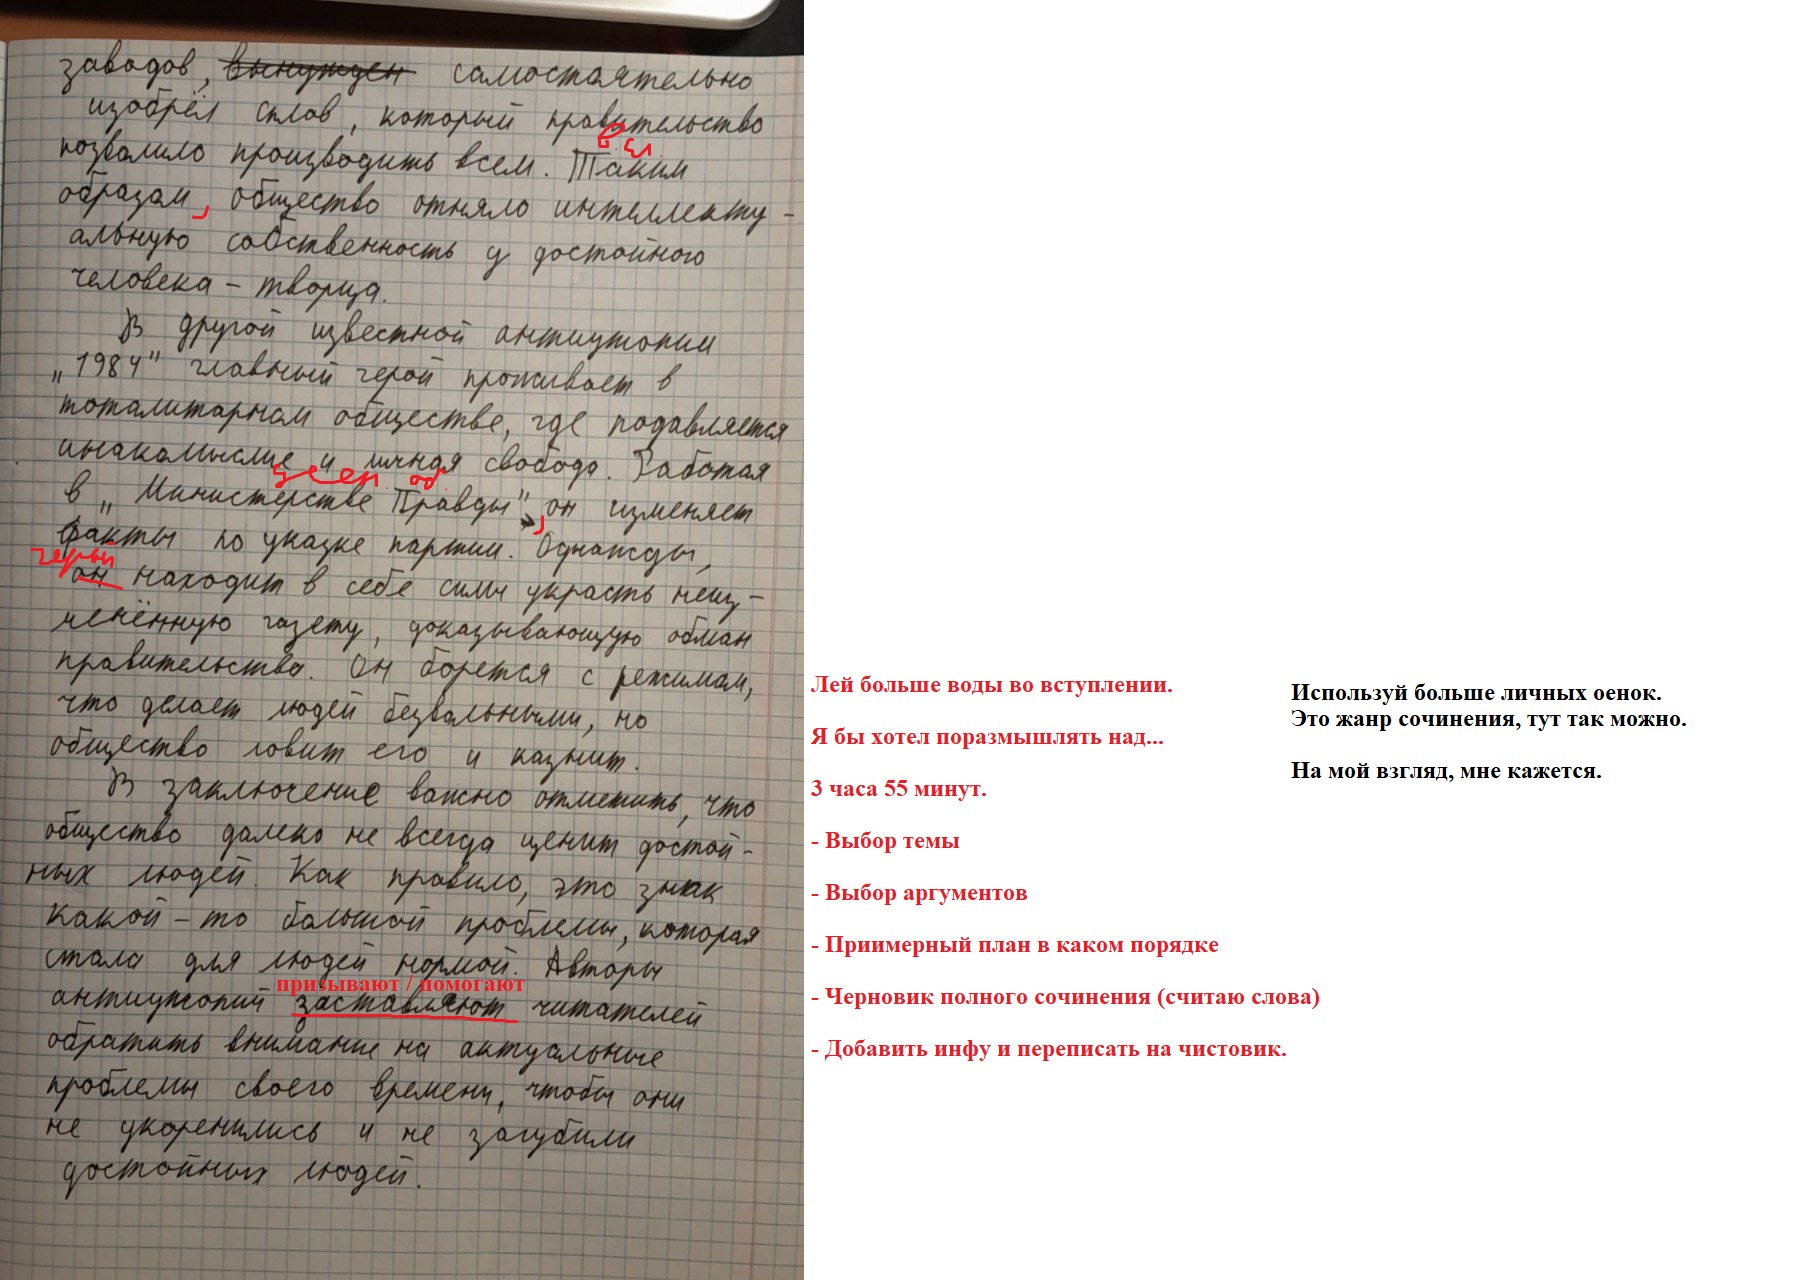 заводов, вынужден самостоятельно
изобрёл сплав, который правительство
позволило производить всем. Таким
образом, общество отняло интеллекту-
альную собственность у достойного
человека – творца.
В другой известной антиутопии
„1984" главный герой проживает в
тоталитарном обществе, где подавляется
инакомыслие и личная свобода. Работая
в „Министерстве Правды", он изменяет
факты по указке партии. Однажды,
герой
он находит в себе силы украсть неиз-
менённую газету, доказывающую обман
правительства. Он борется с режимом,
что делает людей безвольными, но
общество ловит его и казнит.
В заключение важно отметить, что
общество далеко не всегда ценит достой-
ных людей. Как правило, это знак
какой-то большой проблемы, которая
стала для людей нормой. Авторы
призывают / помогают
антиутопий заставляют читателей
обратить внимание на актуальные
проблемы своего времени, чтобы они
не укоренились и не загубили
достойных людей.
Лей больше воды во вступлении.
Я бы хотел поразмышлять над...
3 часа 55 минут.
- Выбор темы
- Выбор аргументов
- Приимерный план в каком порядке
- Черновик полного сочинения (считаю слова)
- Добавить инфу и переписать на чистовик.
Используй больше личных оенок.
Это жанр сочинения, тут так можно.
На мой взгляд, мне кажется.